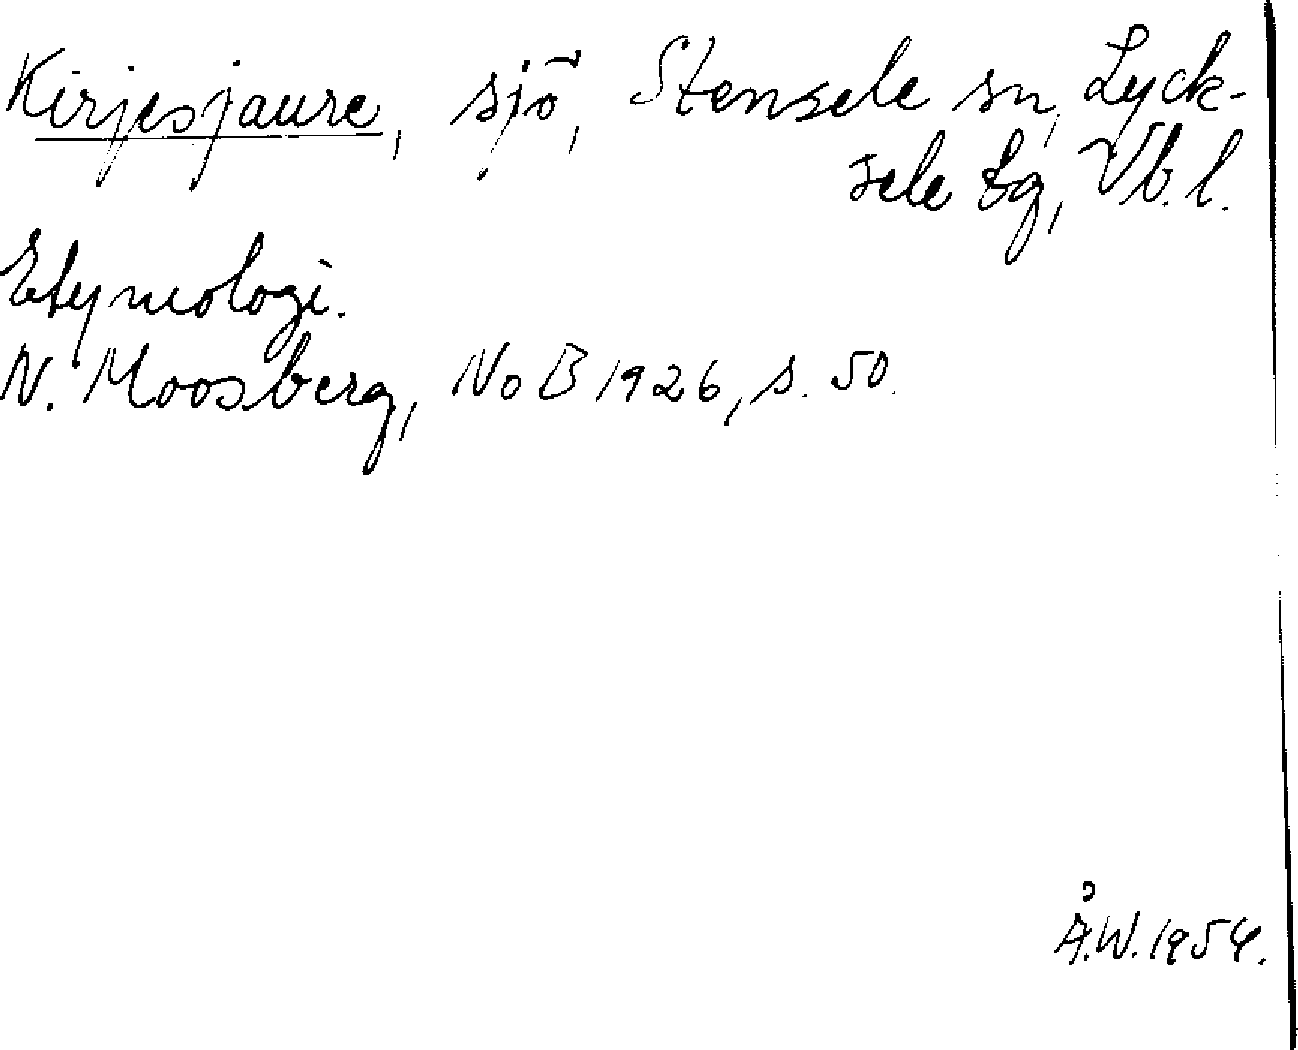 Kirjesjaure, sjö, Stensele sn, Lyck-
sele tg, Vb. l.
Etymologi.
N. Moosberg, NoB 1926, s. 50.
Å.W. 1954.